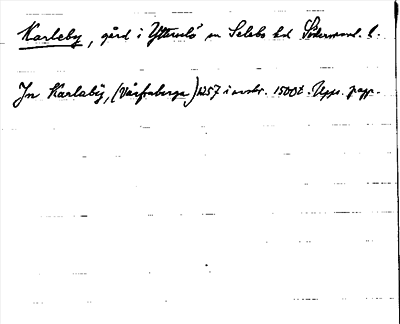 Karleby, gård i Ytterselö sn Selebo hd Södermanl. l.
In Karlaby, (Vårfruberga) 1257 i avskr. 1500t. Upps. papp.